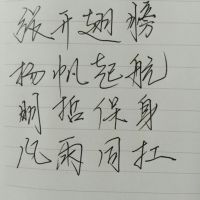 张开翅膀
扬帆起航
明哲保身
风雨同扛